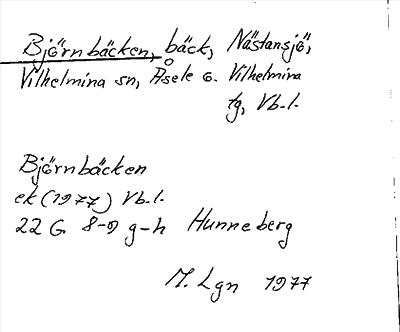 Björnbäcken, bäck, Nästansjö,
Vilhelmina sn, Åsele o. Vilhelmina
tg, Vb.l.
Björnbäcken
ek (1977) Vb.l.
22 G 8-9 g-h Hunneberg
M. Lgn 1977